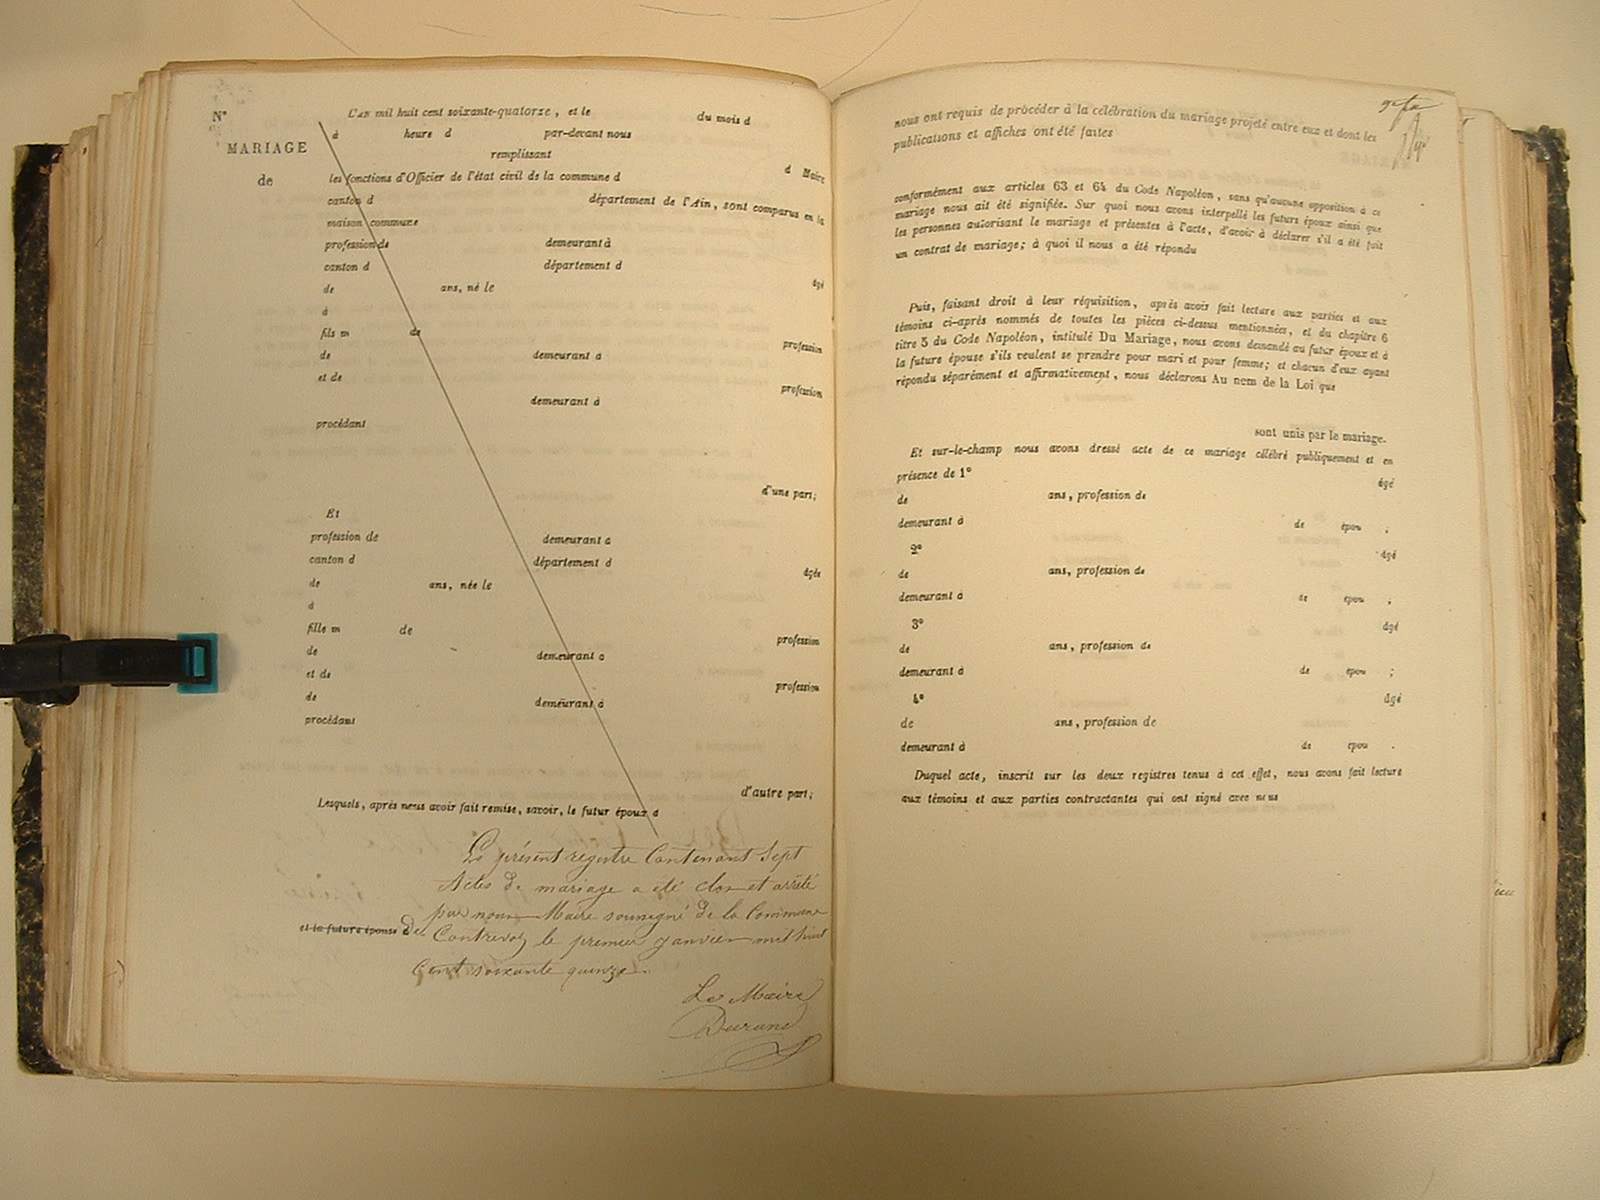 N°
MARIAGE
de
L'AN mil huit cent soixante-quatorze, et le du mois d
à heure d par-devant nous
remplissant
d Maire
les fonctions d'Officier de l'état civil de la commune d
canton d département de l'Ain, sont comparus en la
maison commune
profession de demeurant à
canton d département d
âgé
de ans, né le
à
fils m de
profession
de demeurant à
et de
profession
demeurant à
procédant
d'une part;
Et
profession de demeurant à
canton d département d
âgée
de ans, née le
à
fille m de
profession
de demeurant à
et de
profession
de demeurant à
procédant
d'autre part;
Lesquels, après nous avoir fait remise, savoir, le futur époux d
Le présent registre Contenant Sept
Actes de mariage a été clos et arrêté
par nous Maire soussigné de la Commune
et la future épouse d
de Contrevoz le premier janvier mil huit
Cent soixante quinze.
Le Maire
Durand
nous ont requis de procéder à la célébration du mariage projeté entre eux et dont les
publications et affiches ont été faites
conformément aux articles 63 et 64 du Code Napoléon, sans qu'aucune opposition à ce
mariage nous ait été signifiée. Sur quoi nous avons interpellé les futurs époux ainsi que
les personnes autorisant le mariage et présentes à l'acte, d'avoir à déclarer s'il a été fait
un contrat de mariage; à quoi il nous a été répondu
Puis, faisant droit à leur réquisition, après avoir fait lecture aux parties et aux
témoins ci-après nommés de toutes les pièces ci-dessus mentionnées, et du chapitre 6
titre 5 du Code Napoléon, intitulé Du Mariage, nous avons demandé au futur époux et à
la future épouse s'ils veulent se prendre pour mari et pour femme; et chacun d'eux ayant
répondu séparément et affirmativement, nous déclarons Au nom de la Loi que
sont unis par le mariage.
Et sur-le-champ nous avons dressé acte de ce mariage célébré publiquement et en
présence de 1°
âgé
de ans, profession de
demeurant à de épou ;
2° âgé
de ans, profession de
demeurant à de épou ;
3° âgé
de ans, profession de
demeurant à de épou ;
4° âgé
de ans, profession de
demeurant à de épou .
Duquel acte, inscrit sur les deux registres tenus à cet effet, nous avons fait lecture
aux témoins et aux parties contractantes qui ont signé avec nous